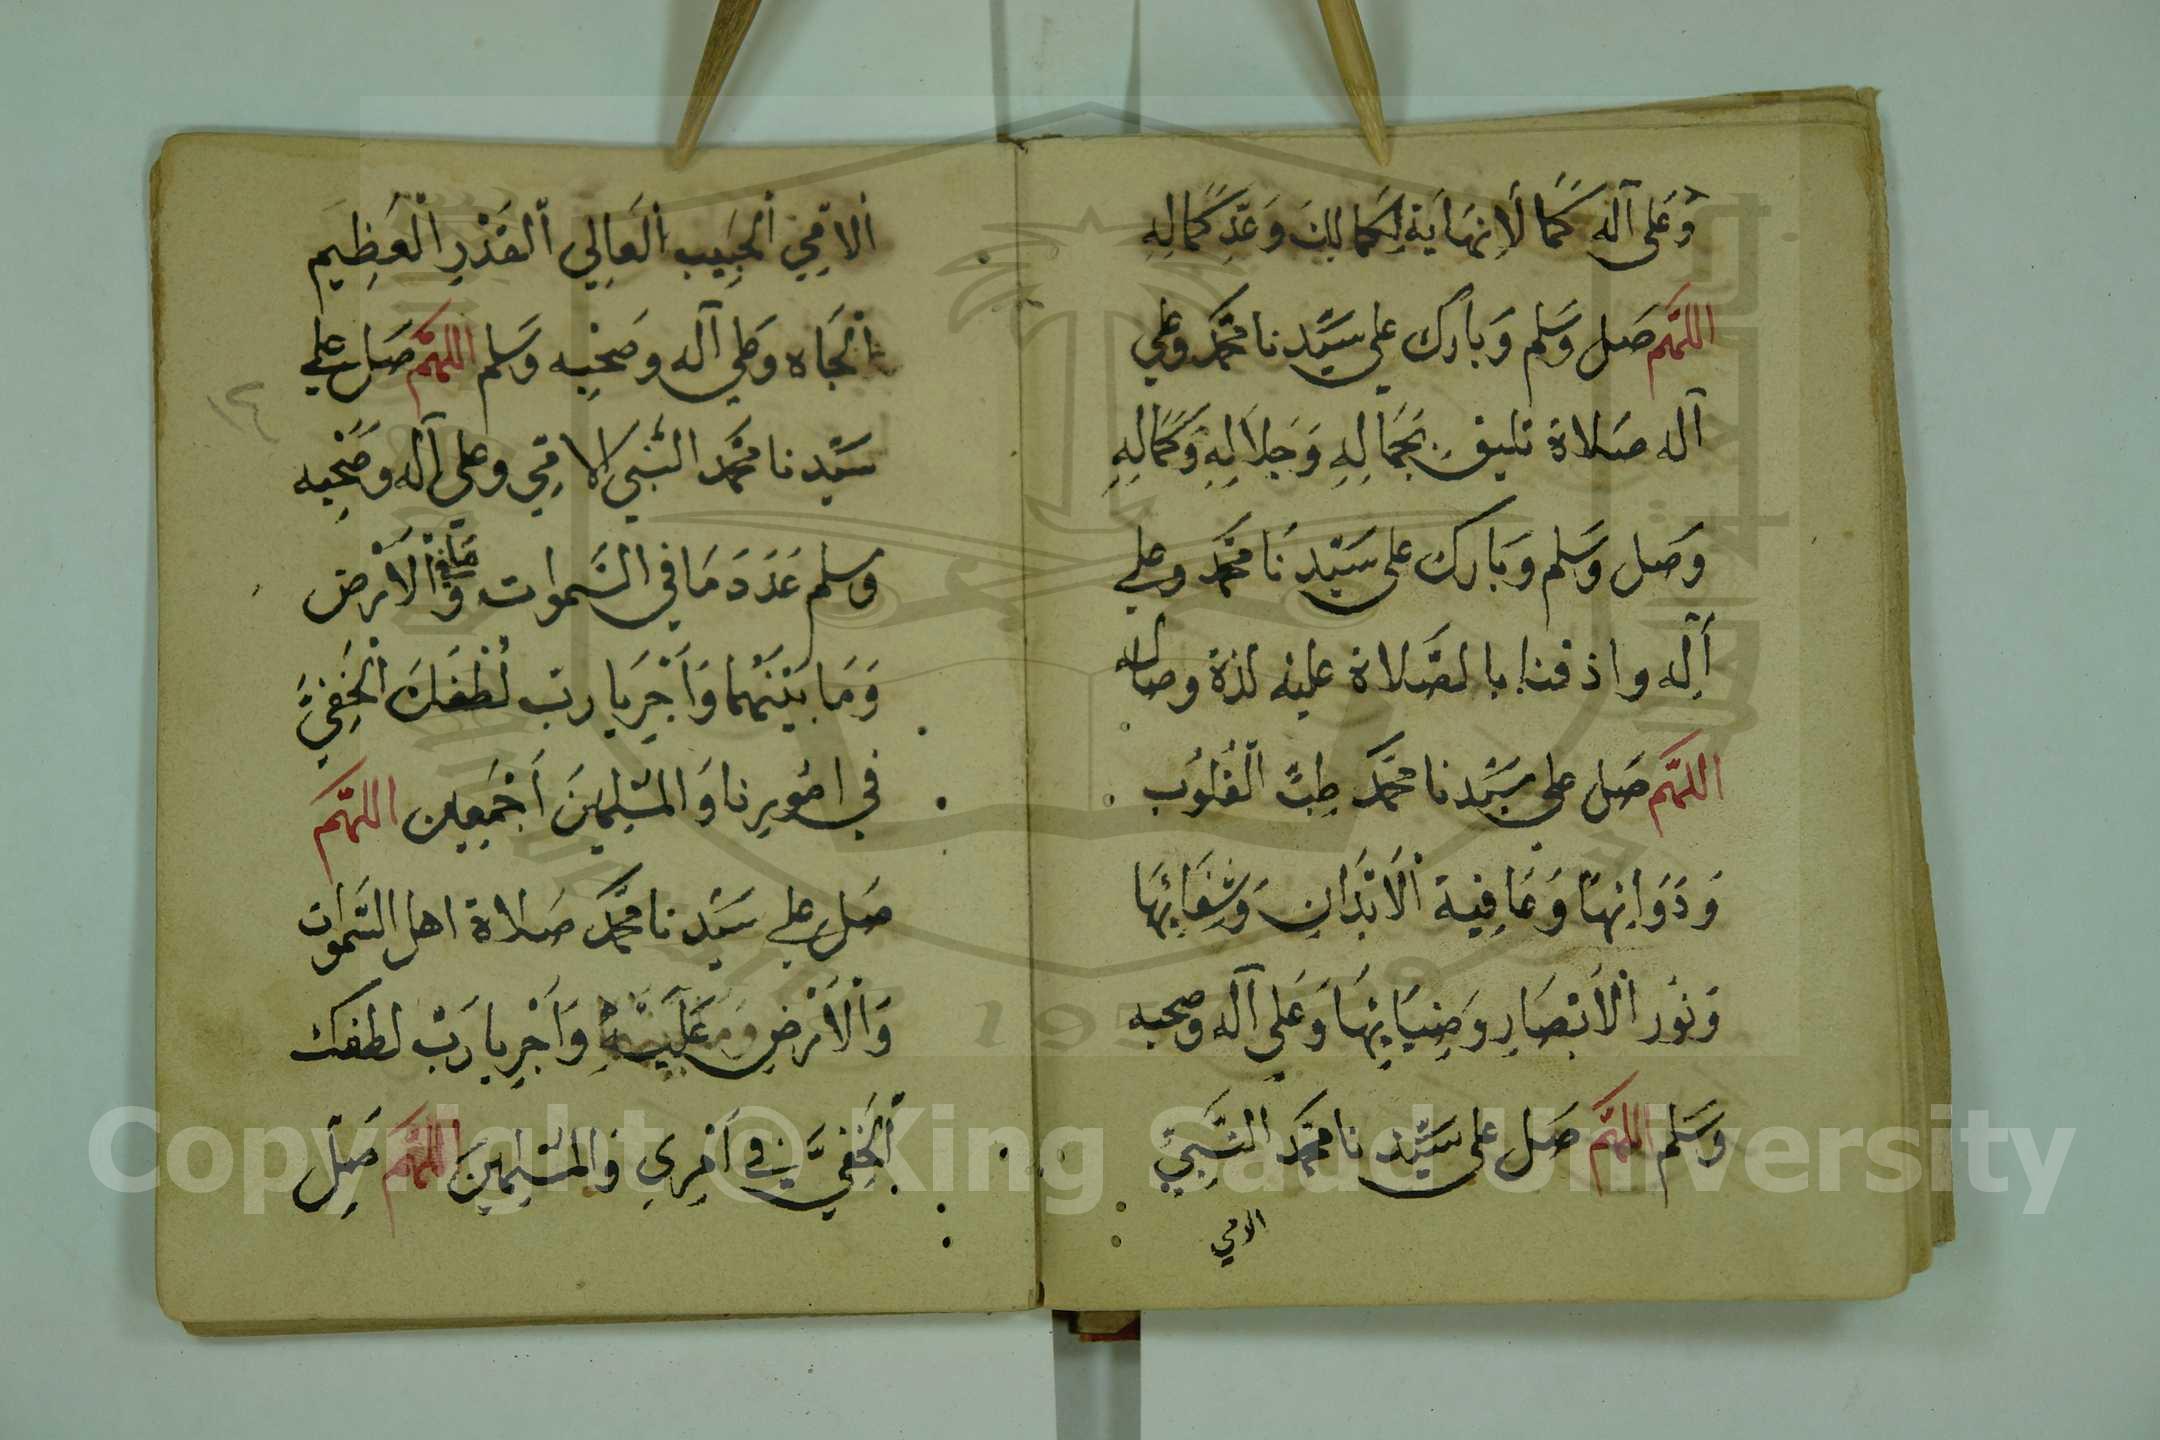 وَعَلى آله كَمَا لَا نِهَايَةَ لِكَمَالِكَ وَعَدِّ كَمَالِهِ
اللهُمَّ صَل وَسَلم وَبارك على سَيِّدنا محمَّد وعلى
آله صَلاة تليق بجَمَالِهِ وَجَلَالِهِ وَكَمَالِهِ
وَصَل وَسَلم وَبَارك على سَيِّدنَا محمَّد وعلى
آلِه واذقنا بالصَّلاة عليه لذة وصاله
اللهُمَّ صَل على سَيِّدنا محمَّد طِبِّ الْقُلُوب
وَدَوَائِهَا وَعَافِية الْأَبْدَانِ وَشِفَائِهَا
وَنوُر الْأَبْصَارِ وَضِيَائِهَا وَعَلى آله وصحبه
وَسَلم اللهُمَّ صَل على سَيِّدنا محمَّد النَّبيّ
الامي
الْامِّيّ الْحَبِيب الْعَالِي الْقَدْرِ الْعَظِيم
الْجَاه وَعلى آله وصَحْبِه وَسَلم اللهُمَّ صَل على
سَيِّدنا محمَّد النَّبيّ الامِّي وعلى آله وَصَحْبِه
وسلم عَدَدَ مَا في السَّموات وَمَا في الْأَرْض
وَمَا بَيْنَهُما وَأَجْرِ يا ربّ لُطْفَكَ الْخَفِيَّ
في امُورِنا وَالمسْلِمِينَ أَجْمَعِين اللهُمَّ
صَل على سَيِّدنا محمَّد صَلاة اهل السَّموات
وَالْأَرْضِ عَلَيْهِ وَأَجْرِ يا رَبّ لطفك
الْخَفِيَّ في أَمْرِي وَالمسْلِمِينَ اللهُمَّ صَلِّ
١٤
Copyright © King Saud University